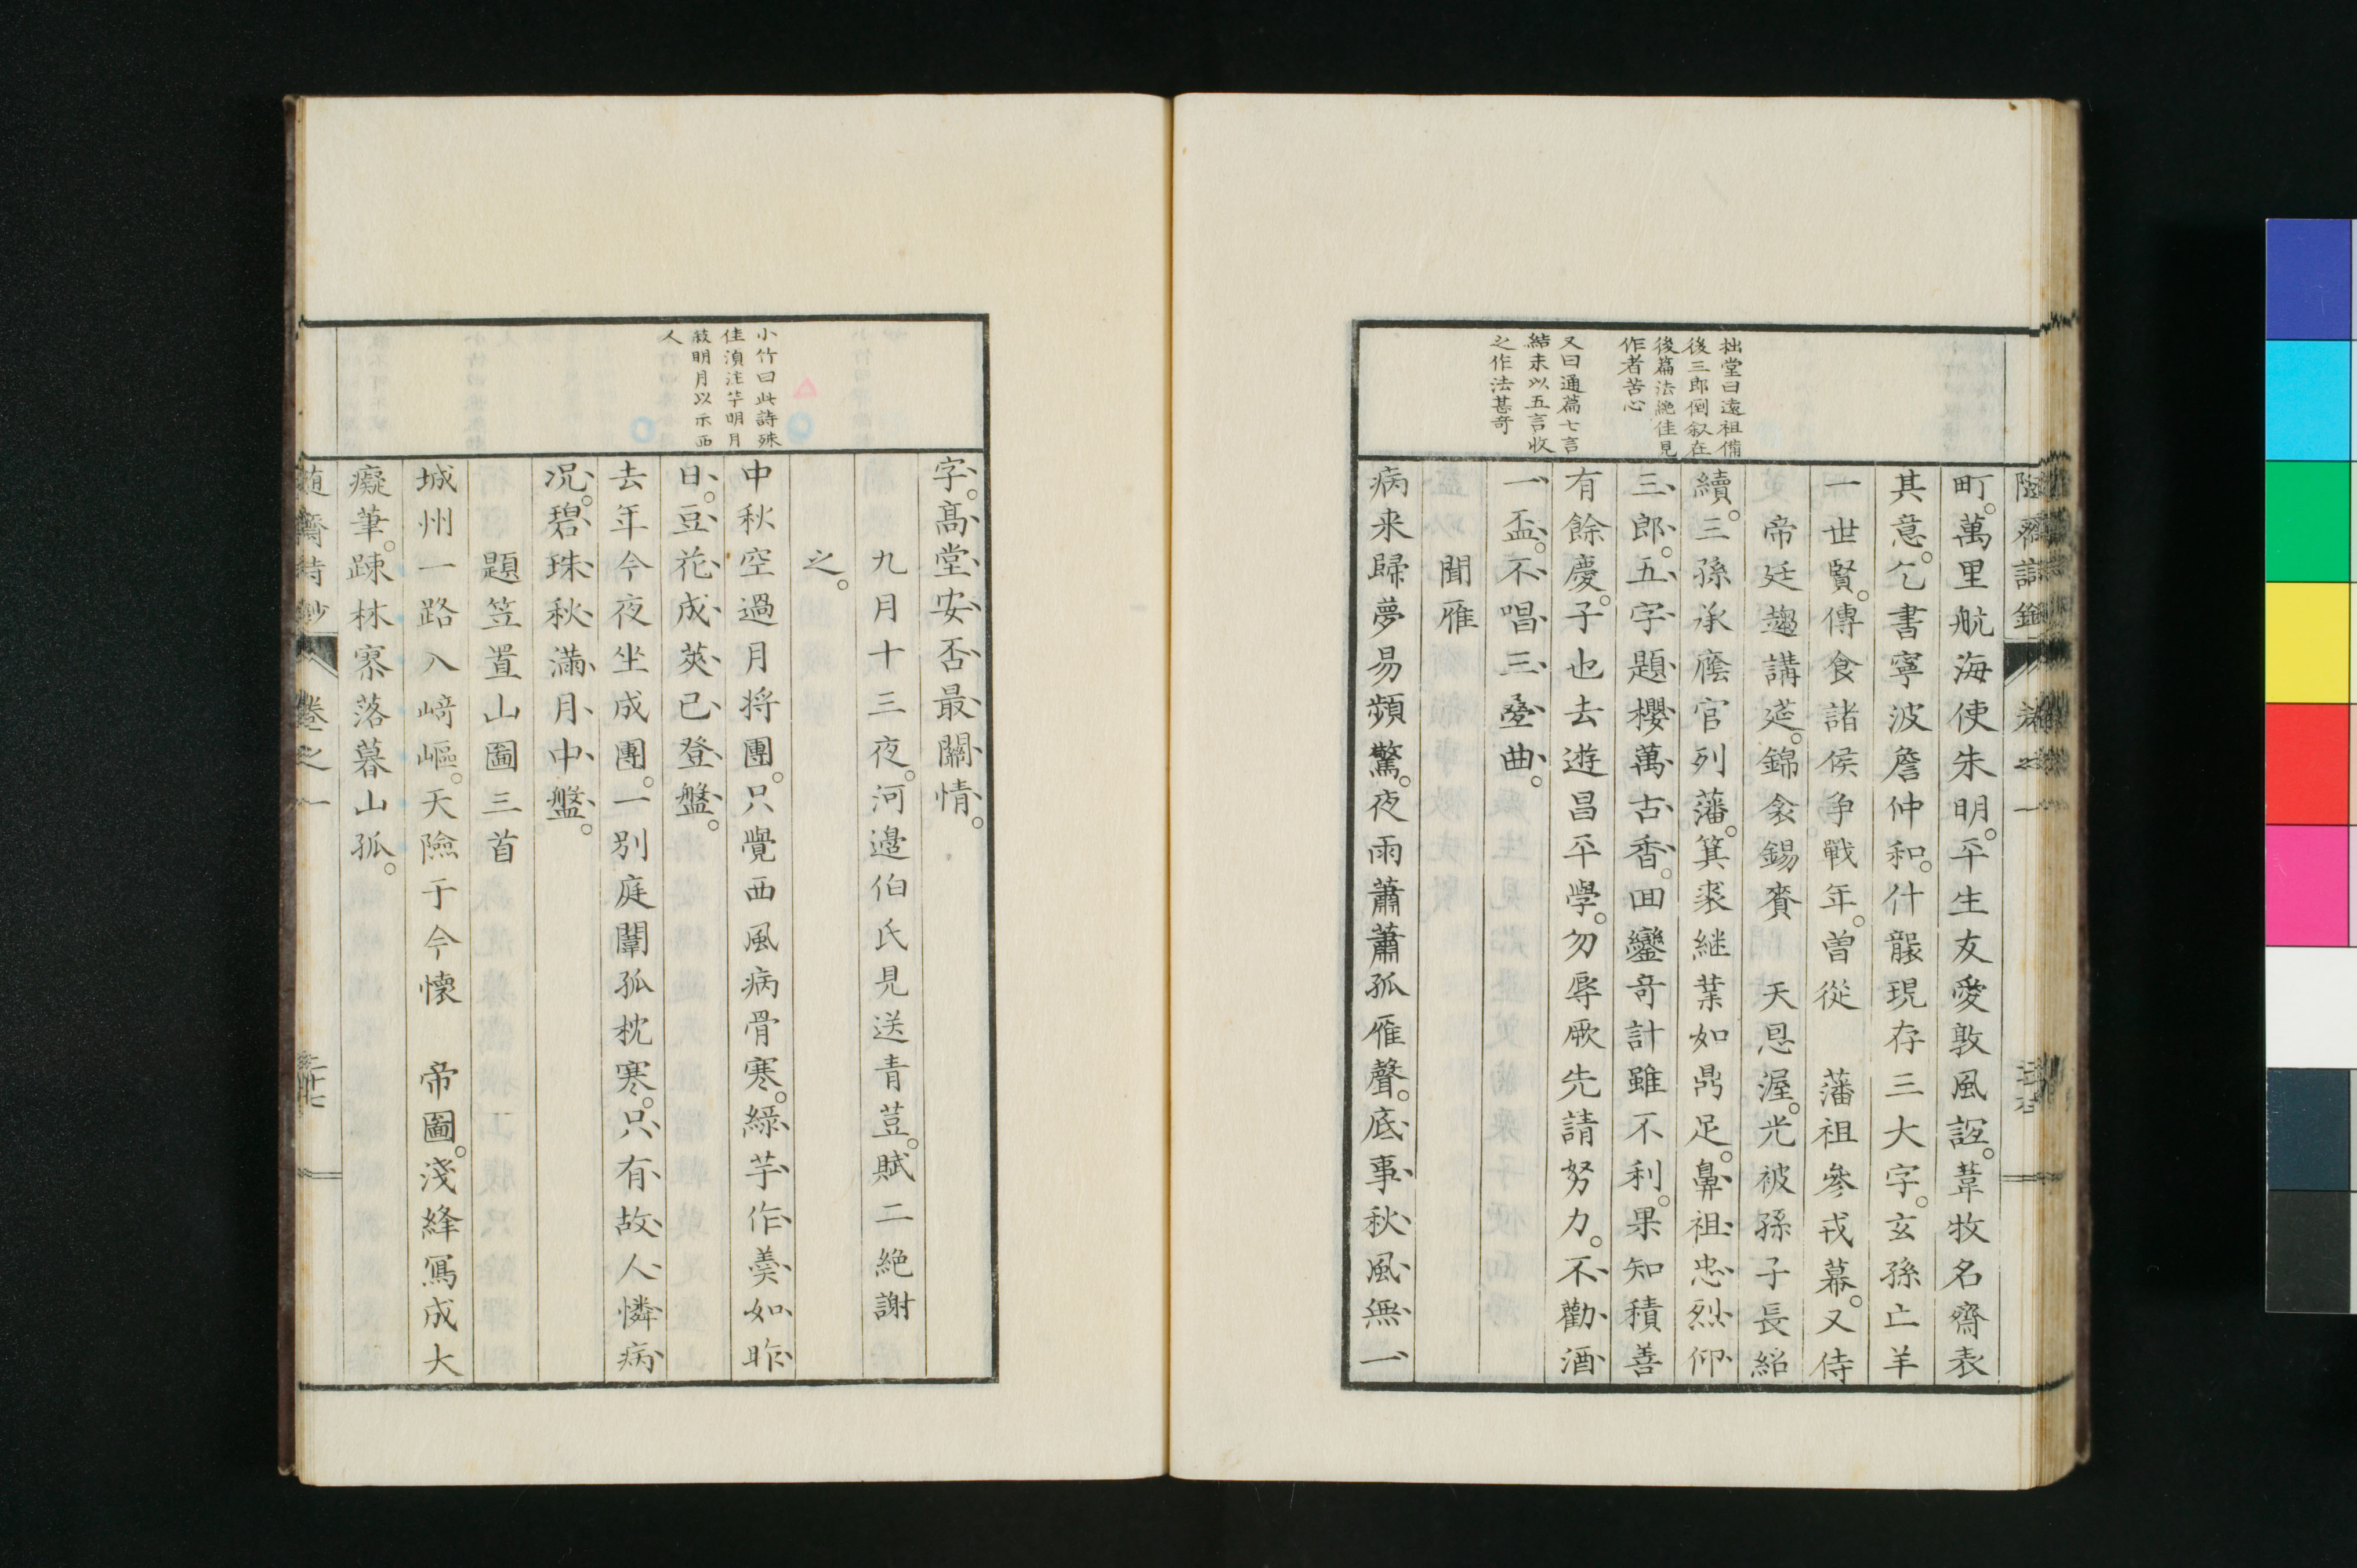 拙堂曰遠祖備
後三郎倒叙在
後篇法絶佳見
作者苦心
又曰通篇七言
結末以五言收
之作法甚奇
町。萬里航海使朱明。平生友愛敦風誼。葦牧名齋表
其意。乞書寧波詹仲和。什襲現存三大字。玄孫亡羊
一世賢。傳食諸侯爭戰年。曽從　藩祖參戎幕。又侍
帝廷趨講莚。錦衾錫賚　天恩渥。光被孫子長紹
續。三孫承廕官列藩。箕裘継葉如鼎足。鼻祖忠烈仰
三郎。五字題櫻萬古香。回鑾奇計雖不利。果知積善
有餘慶。子也去遊昌平學。勿辱厥先請努力。不勸酒
一盃。不唱三疊曲。
聞雁
病来歸夢易頻驚。夜雨蕭蕭孤雁聲。底事秋風無一
小竹曰此詩殊
佳湏注芋明月
菽明月以示西
人
字。髙堂安否最關情。
九月十三夜。河邉伯氏見送青荳。賦二絶謝
之。
中秋空過月将團。只覺西風病骨寒。綠芋作羹如昨
日。豆花成莢已登盤。
去年今夜坐成團。一別庭闈孤枕寒。只有故人憐病
况。碧珠秋滿月中盤。
題笠置山圖三首
城州一路入﨑嶇。天險于今懐　帝圖。淺絳寫成大
癡筆。踈林寥落暮山孤。
齋詩鈔　卷之一